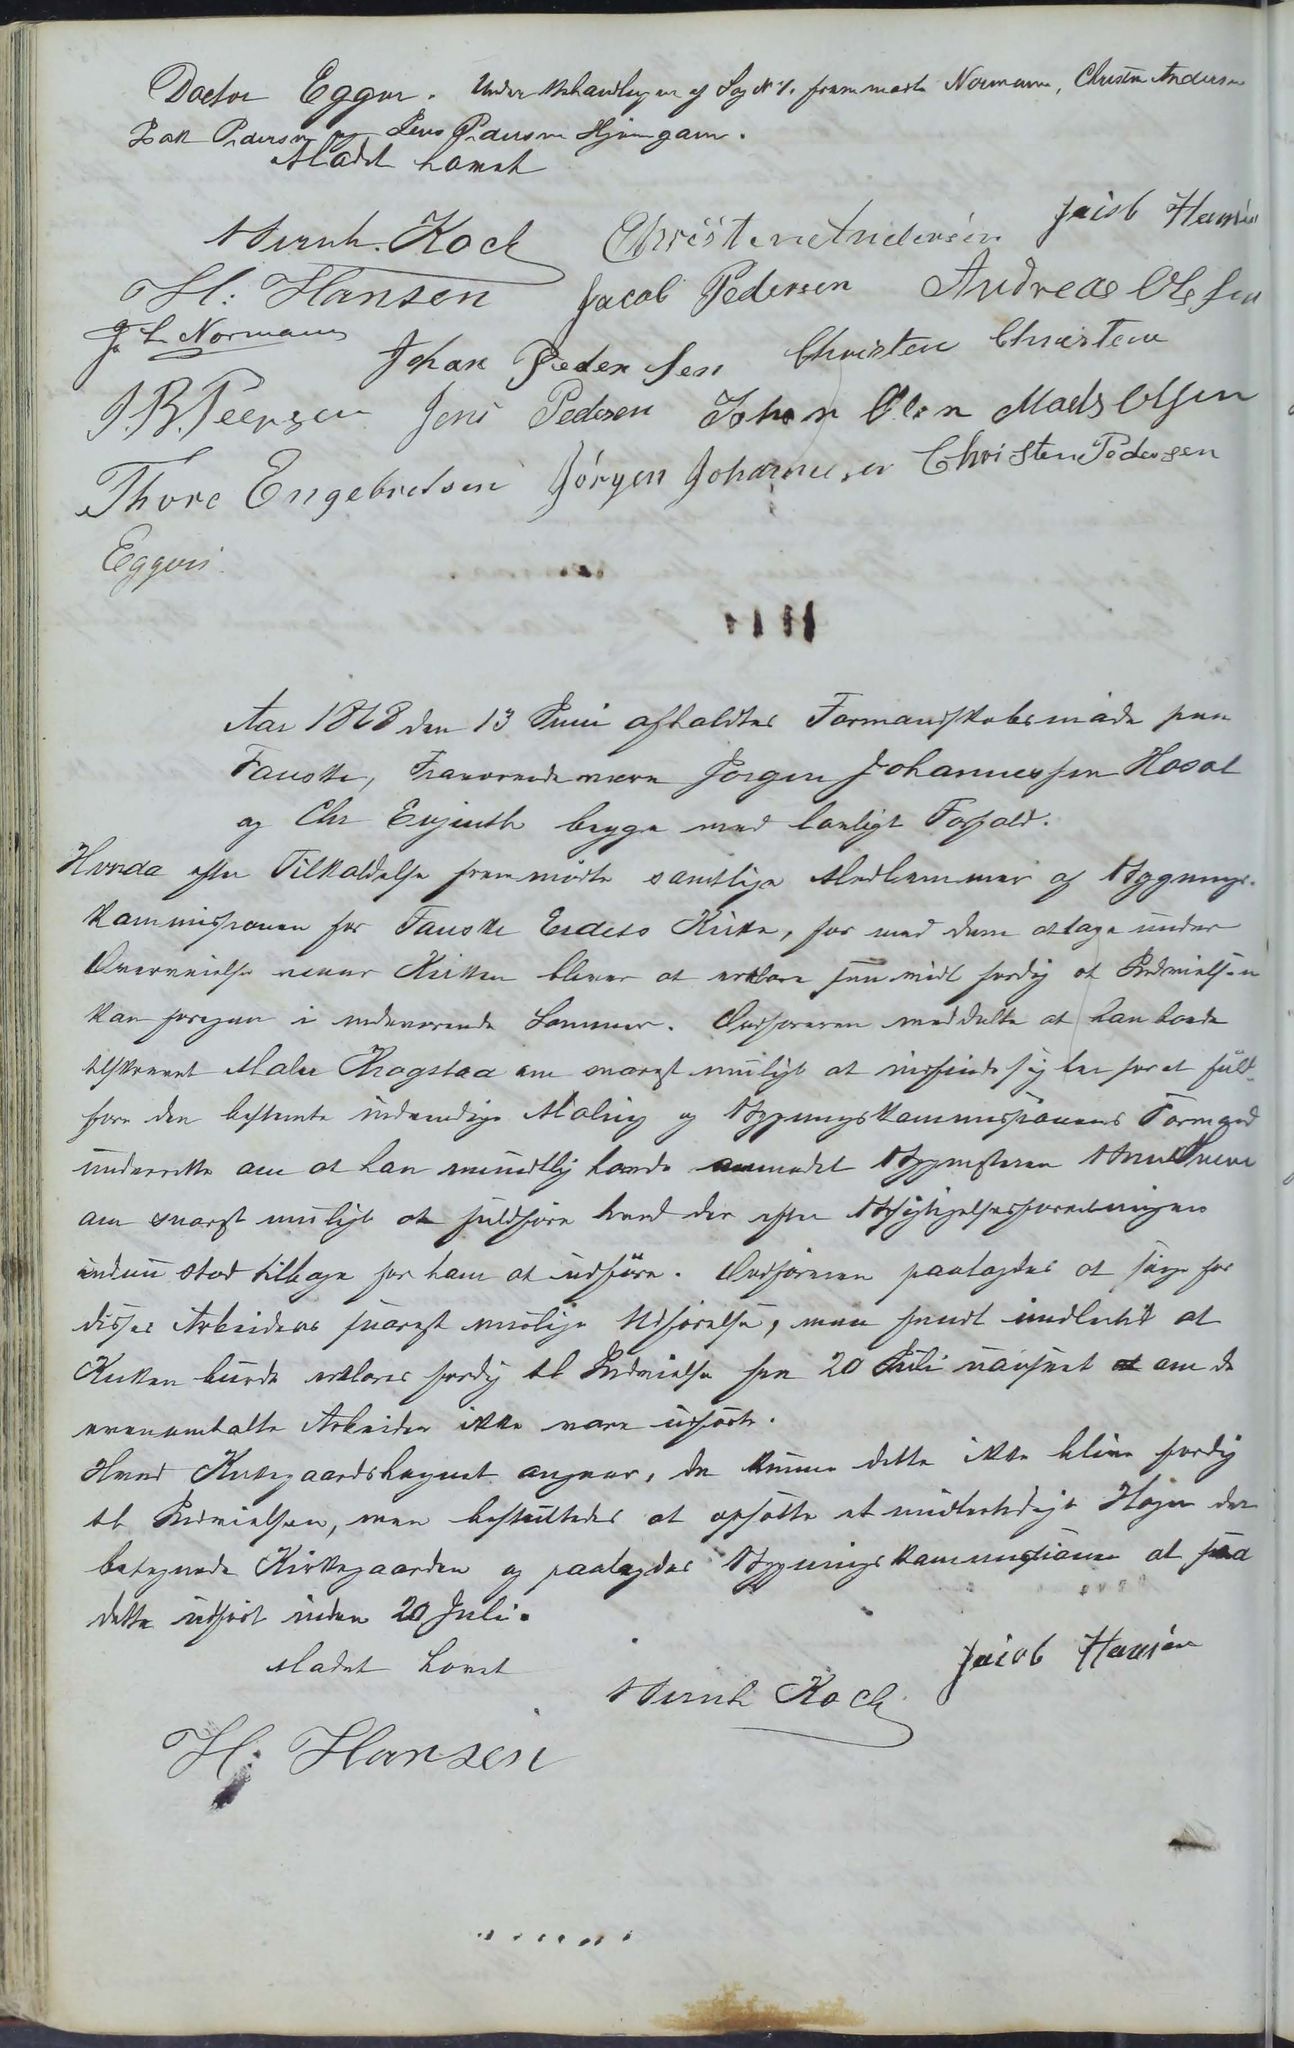 Doctor Eggen. Under Behandlingen af Sag No 1. fremmødte Normann, Christen Andersen
Isak Pedersen og Jens Pedersen Hjemgam.
Mødet hævet
Bernh. Koch Christen Andersen Jacob Hansen
H: Hansen Jacob Pedersen Andreas Olsen
J L Normann
Johan Pedersen Christen Christensen
J. B. Jeepsen Jens Pedersen Johan Olsen Mads Olsen
Thore Engebretsen Jörgen Johannesen Christen Pedersen
Eggen
Aar 1868 den 13 Juni afholdtes Formandskabsmøde paa
Fauske, Fraværende vare Jørgen Johannessen Hosol
og Chr Evjenth begge med lovligt Forfald.
Hvorda efter Tilkaldelse fremmødte samtlige Medlemmer af Bygnings-
kommissionen for Fauske Eides Kirke, for med dem at tage under
Overveielse naar Kirken bliver at erklære saavidt færdig at Indvielsen
kan foregaa i indeværende Sommer. Ordføreren meddelte at han havde
tilskrevet Maler Krogstad om snarest muligt at indfinde sig her for at fuld-
føre den bestemte indvendige Maling og Bygningskommissionens Formand
underrette om at han mundtlig havde anmodet Bygmesteren
om snarest muligt at fuldføre hvad der efter Besigtigelsesforretningen
endnu stod tilbage for ham at udføre. Ordføreren paalagdes at sørge for
disses Arbeiders snarest mulige Udførelse, man fandt imidlertid at
Kirken burde erklæres færdig til Indvielse fra 20 Juli uanseet om de
ovenomtalte Arbeider ikke vare udførte.
Hvad Kirkegaardshegnet angaar, da kunne dette ikke blive færdig
til Indvielsen, men besluttedes at opsætte et midlertidigt Hegn der
betegnede Kirkegaarden og paalagdes Bygningskommissionen at faa
dette udført inden 20 Juli.
Mødet hævet
Jacob Hansen
Bernh Koch
H: Hansen